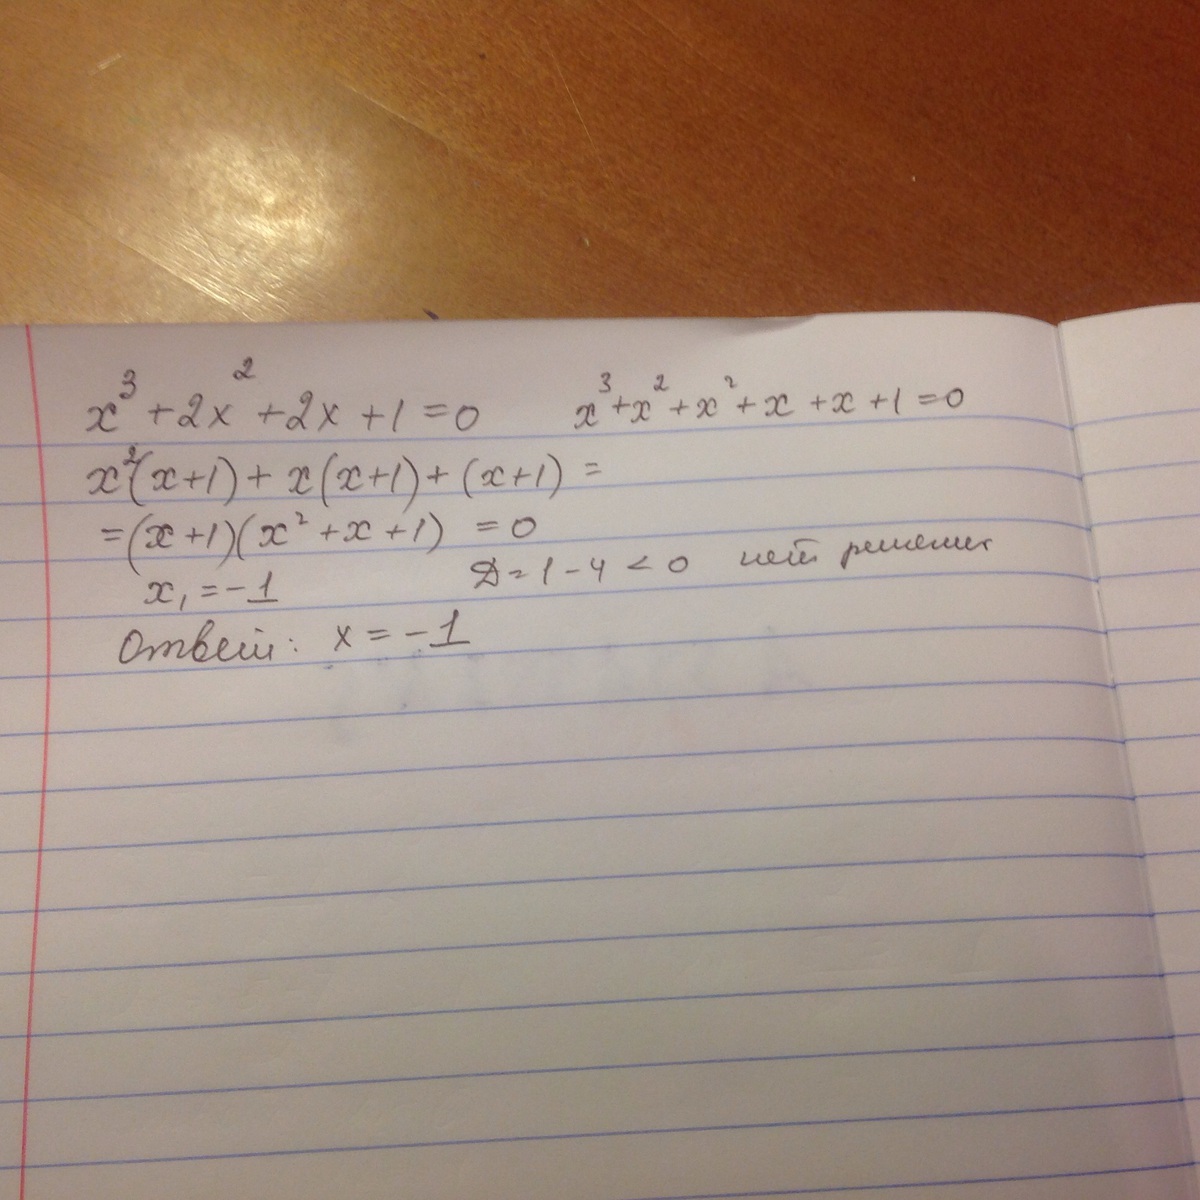 x³ + 2x² + 2x + 1 = 0 x³ + x² + x² + x + x + 1 = 0
x²(x+1) + x(x+1) + (x+1) =
= (x+1)(x² + x + 1) = 0
x₁ = -1 D = 1 - 4 < 0 нет решения
Ответ: x = -1